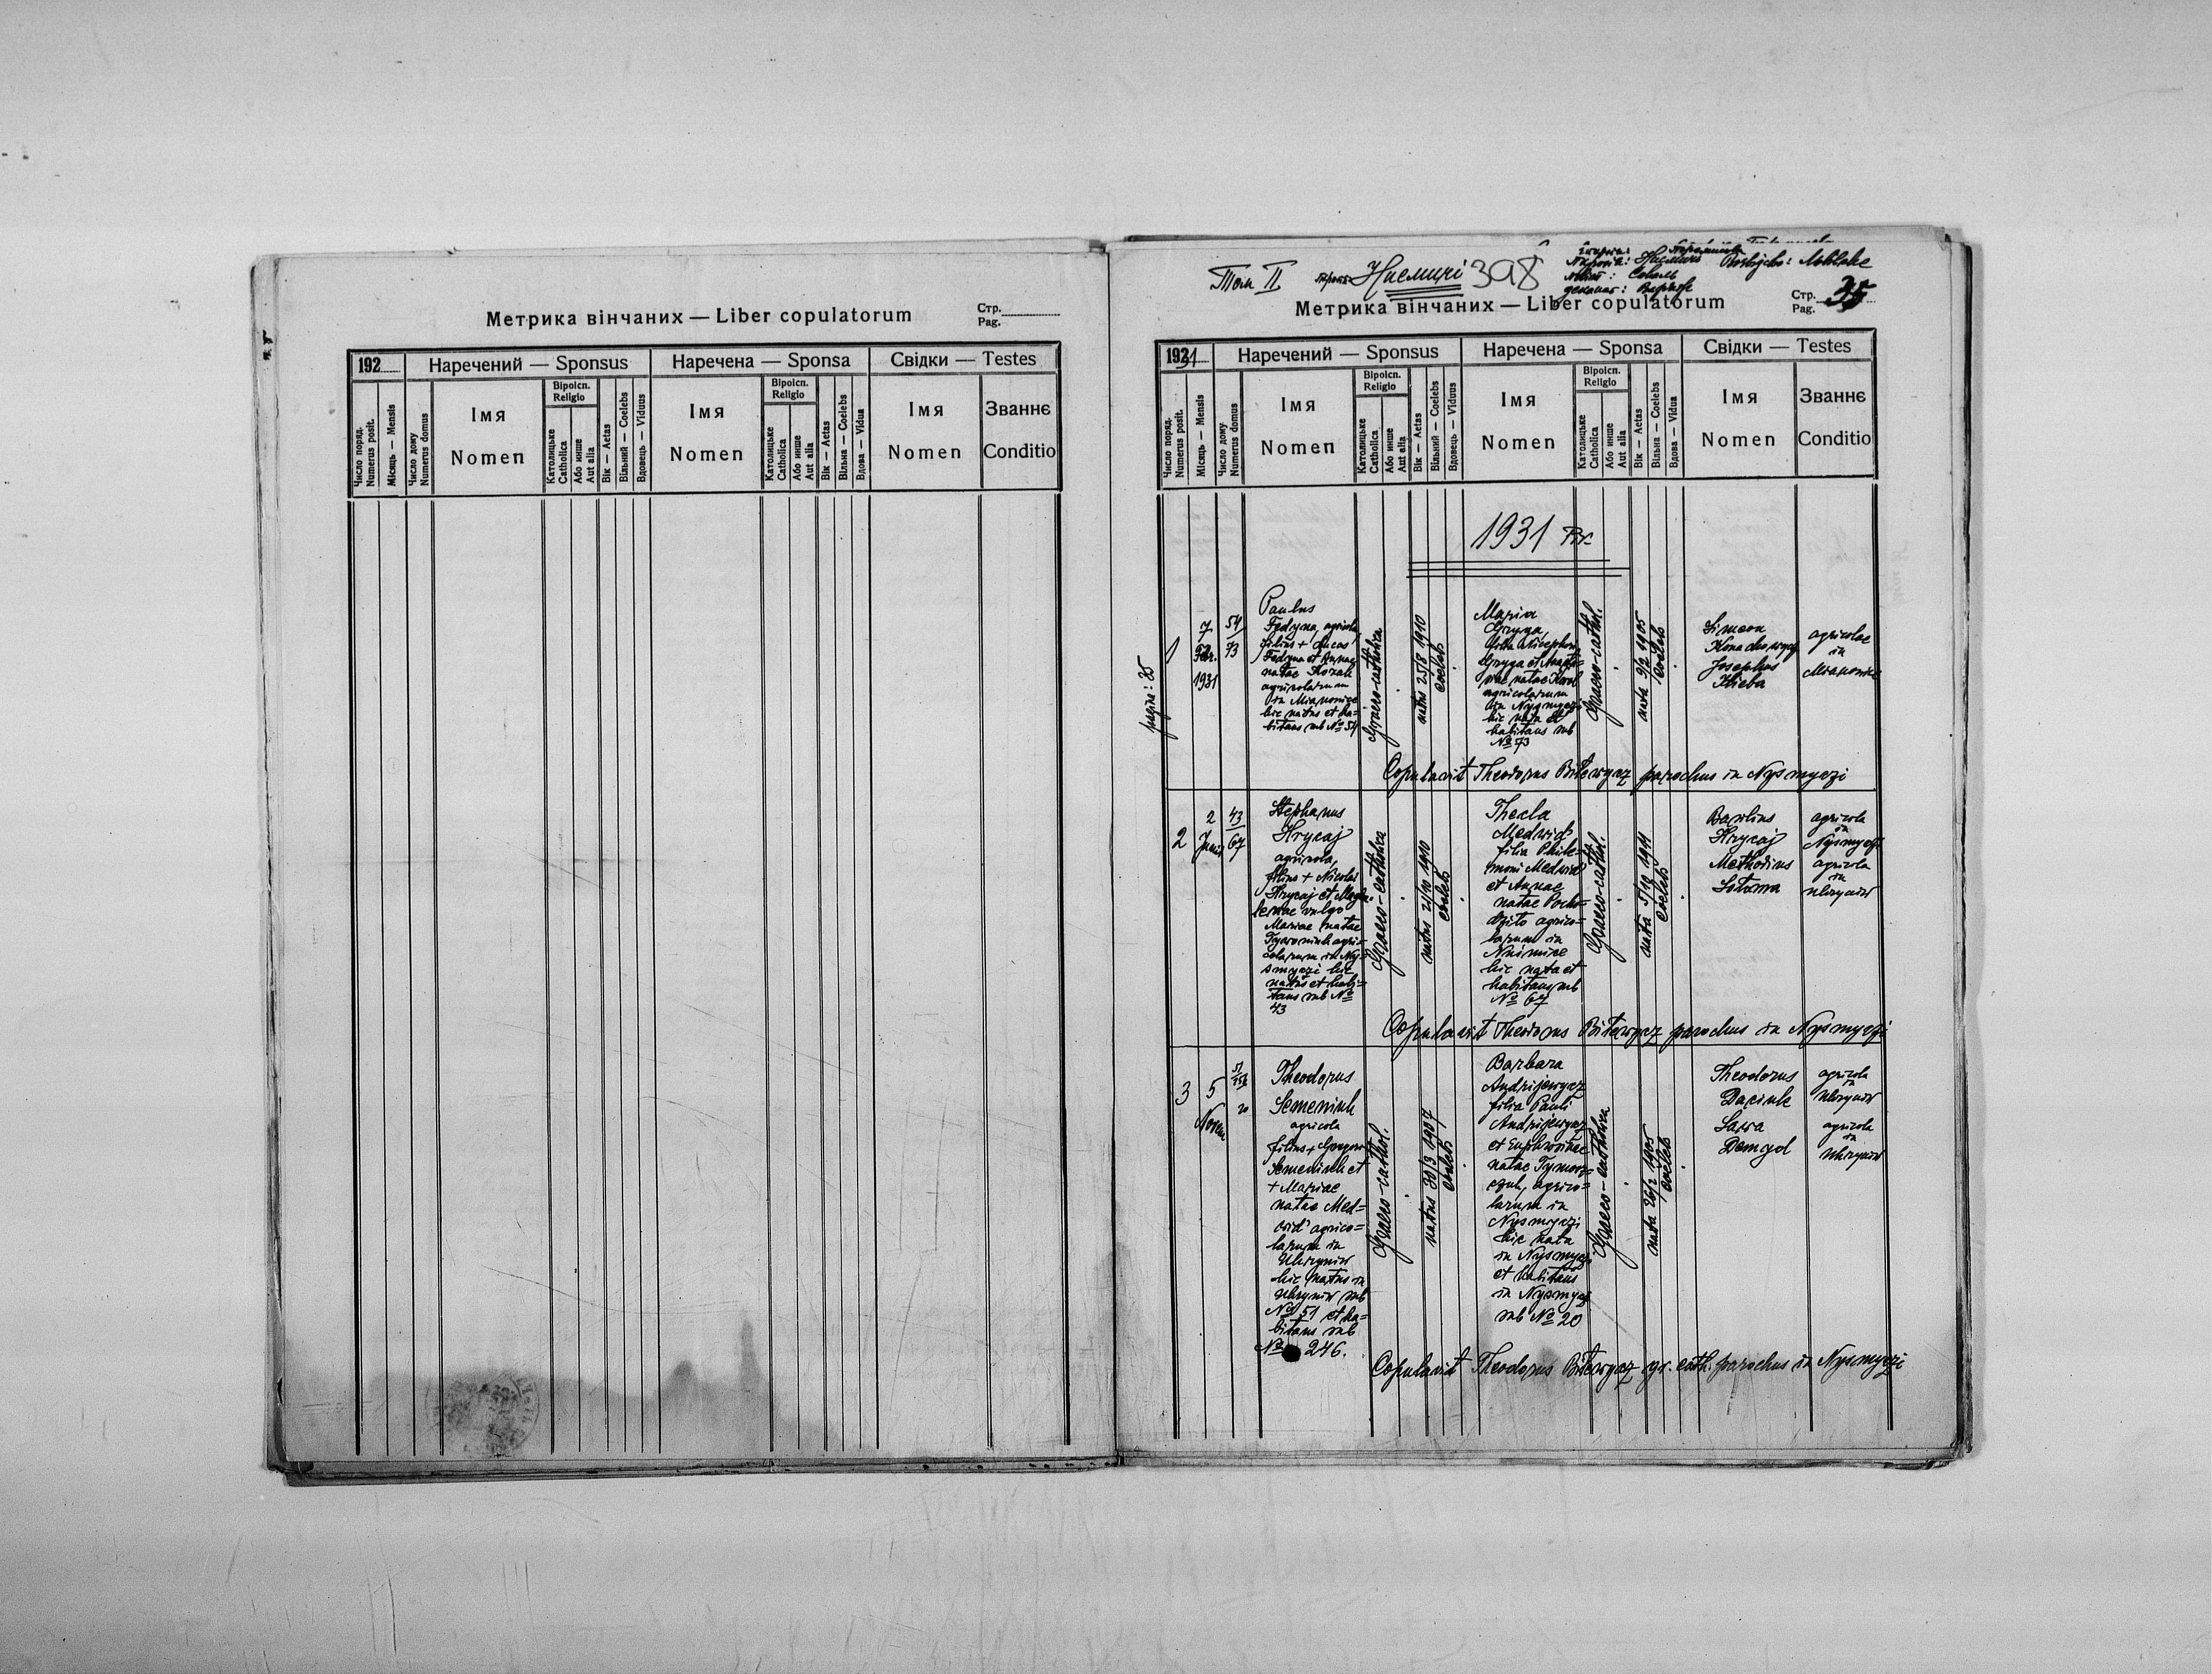 Метрика вінчаних — Liber copulatorum
Стр.
Pag.
192
Наречений — Sponsus
Наречена — Sponsa
Свідки — Testes
Число поряд.
Numerus posit.
Місяць — Mensis
Число дому
Numerus domus
Імя
Nomen
Віроісп.
Religio
Католицьке
Catholica
Або инше
Aut alia
Вік — Aetas
Вільний — Coelebs
Вдовець — Viduus
Імя
Nomen
Віроісп.
Religio
Католицьке
Catholica
Або инше
Aut alia
Вік — Aetas
Вільна — Coelebs
Вдова — Vidua
Імя
Nomen
Званнє
Conditio
Том II
Нисмичі 398
Метрика вінчаних — Liber copulatorum
Стр.
Pag.
35
1931
Наречений — Sponsus
Наречена — Sponsa
Свідки — Testes
Число поряд.
Numerus posit.
Місяць — Mensis
Число дому
Numerus domus
Імя
Nomen
Віроісп.
Religio
Католицьке
Catholica
Або инше
Aut alia
Вік — Aetas
Вільний — Coelebs
Вдовець — Viduus
Імя
Nomen
Віроісп.
Religio
Католицьке
Catholica
Або инше
Aut alia
Вік — Aetas
Вільна — Coelebs
Вдова — Vidua
Імя
Nomen
Званнє
Conditio
1931
pagina: 35
1
7
Febr.
1931
54
73
Paulus
Fedyna, agricola,
filius + Lucas
Fedyna et Annae
natae Kozak
agricolarum
in Mianowice
hic natus et ha=
bitans sub № 54
Graeco-catholica
natus 25/8 1910
coelebs
Maria
Gryga,
filia Nicephori
Gryga et
natae
agricolarum
in Nysmyczi
hic nata et
habitans sub
№ 73
Graeco-cathol.
nata 9/2 1905
coelebs
Simeon
Josephus
Hlieba
agricolae
in
Mianowice
Copulavit Theodorus Bitewycz parochus in Nysmyczi
2
2
Junii
43
67
Stephanus
Hrycaj
agricola,
filius + Nicolai
Hrycaj et Magda=
lenae vulgo
Mariae natae
agri=
colarum in Ny=
smyczi hic
natus et habi=
tans sub №
43
Graeco-catholica
natus 21/10 1910
coelebs
Thecla
Medwid
filia Phile=
moni Medwid
et Annae
natae Pocho=
dzito agrico=
larum in
hic nata et
habitans sub
№ 67
Graeco-cathol.
nata 5/10 1911
coelebs
Basilius
Hrycaj
Methodius
Sotoma
agricola
in
Nysmyczi
agricola
in
Uhrynów
Copulavit Theodorus Bitewycz parochus in Nysmyczi
3
5
Novem
51
246
20
Theodorus
Semeniuk
agricola
filius + Gregorii
Semeniuk et
+ Mariae
natae Med=
wid' agrico=
larum in
Uhrynów
hic natus in
Uhrynów sub
№ 51 et ha=
bitans sub
№ 246.
Graeco-cathol.
natus 30/3 1907
coelebs
Barbara
Andrijewycz
filia Pauli
Andrijewycz
et Euphrosinae
natae Tymosz=
czuk, agrico=
larum in
Nysmyczi
hic nata
in Nysmyczi
et habitans
in Nysmyczi
sub № 20
Graeco-catholica
nata 26/2 1905
coelebs
Theodorus
Daciuk
Sawa
Demydl
agricola
in
Uhrynów
agricola
in
Uhrynów
Copulavit Theodorus Bitewycz gr. cath. parochus in Nysmyczi